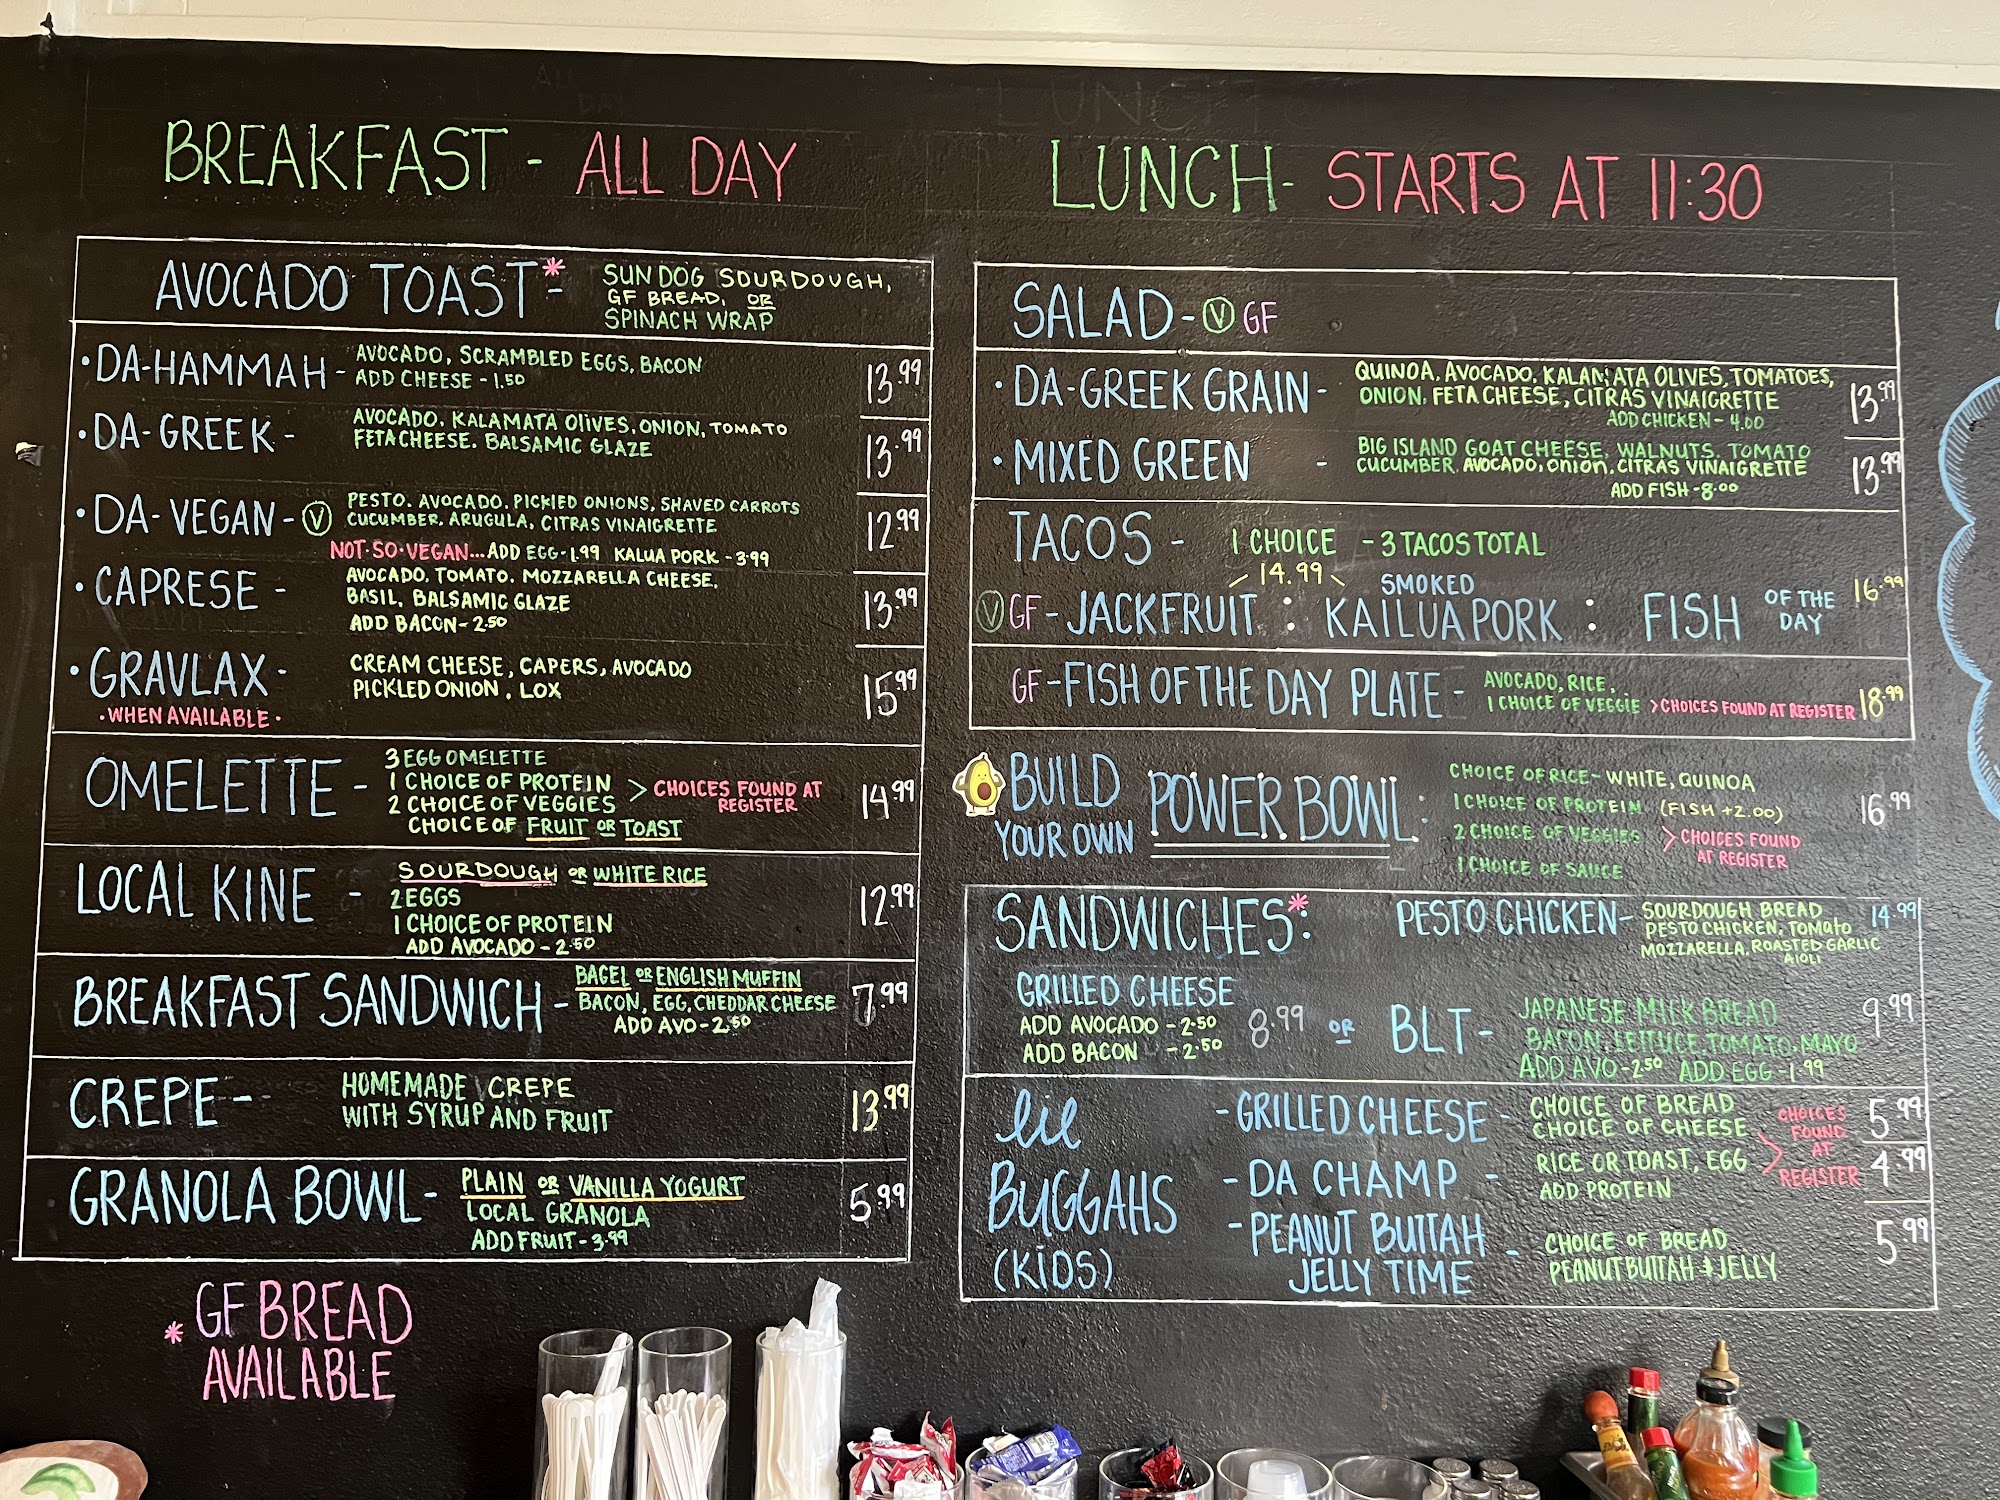 BREAKFAST - ALL DAY
AVOCADO TOAST* -
SUN DOG SOURDOUGH,
GF BREAD, OR
SPINACH WRAP
• DA-HAMMAH -
AVOCADO, SCRAMBLED EGGS, BACON
ADD CHEESE - 1.50
13.99
• DA-GREEK -
AVOCADO, KALAMATA OLIVES, ONION, TOMATO
FETA CHEESE. BALSAMIC GLAZE
13.99
• DA-VEGAN - V
PESTO, AVOCADO, PICKLED ONIONS, SHAVED CARROTS
CUCUMBER, ARUGULA, CITRAS VINAIGRETTE
12.99
NOT·SO·VEGAN... ADD EGG - 1.99 KALUA PORK - 3.99
• CAPRESE -
AVOCADO, TOMATO, MOZZARELLA CHEESE,
BASIL, BALSAMIC GLAZE
ADD BACON - 2.50
13.99
• GRAVLAX -
• WHEN AVAILABLE •
CREAM CHEESE, CAPERS, AVOCADO
PICKLED ONION, LOX
15.99
OMELETTE -
3 EGG OMELETTE
1 CHOICE OF PROTEIN
2 CHOICE OF VEGGIES
> CHOICES FOUND AT
REGISTER
CHOICE OF FRUIT OR TOAST
14.99
LOCAL KINE -
SOURDOUGH OR WHITE RICE
2 EGGS
1 CHOICE OF PROTEIN
ADD AVOCADO - 2.50
12.99
BREAKFAST SANDWICH -
BAGEL OR ENGLISH MUFFIN
BACON, EGG, CHEDDAR CHEESE
ADD AVO - 2.50
7.99
CREPE -
HOMEMADE CREPE
WITH SYRUP AND FRUIT
13.99
GRANOLA BOWL -
PLAIN OR VANILLA YOGURT
LOCAL GRANOLA
ADD FRUIT - 3.99
5.99
* GF BREAD
AVAILABLE
LUNCH - STARTS AT 11:30
SALAD - V GF
• DA-GREEK GRAIN -
QUINOA, AVOCADO, KALAMATA OLIVES, TOMATOES,
ONION, FETA CHEESE, CITRAS VINAIGRETTE
ADD CHICKEN - 4.00
13.99
• MIXED GREEN -
BIG ISLAND GOAT CHEESE, WALNUTS, TOMATO
CUCUMBER, AVOCADO, ONION, CITRAS VINAIGRETTE
ADD FISH - 8.00
13.99
TACOS - 1 CHOICE - 3 TACOS TOTAL
14.99
V GF - JACKFRUIT : SMOKED KAILUA PORK : FISH OF THE DAY
16.99
GF - FISH OF THE DAY PLATE -
AVOCADO, RICE,
1 CHOICE OF VEGGIE > CHOICES FOUND AT REGISTER
18.99
BUILD
YOUR OWN
POWER BOWL:
CHOICE OF RICE - WHITE, QUINOA
1 CHOICE OF PROTEIN (FISH +2.00)
2 CHOICE OF VEGGIES
> CHOICES FOUND
AT REGISTER
1 CHOICE OF SAUCE
16.99
SANDWICHES*:
PESTO CHICKEN -
SOURDOUGH BREAD
PESTO CHICKEN, TOMATO
MOZZARELLA, ROASTED GARLIC
AIOLI
14.99
GRILLED CHEESE
ADD AVOCADO - 2.50
ADD BACON - 2.50
8.99
OR
BLT -
JAPANESE MILK BREAD
BACON, LETTUCE, TOMATO, MAYO
ADD AVO - 2.50 ADD EGG - 1.99
9.99
lil
BUGGAHS
(KIDS)
- GRILLED CHEESE -
CHOICE OF BREAD
CHOICE OF CHEESE
5.99
- DA CHAMP -
RICE OR TOAST, EGG
ADD PROTEIN
4.99
> CHOICES
FOUND
AT
REGISTER
- PEANUT BUTTAH
JELLY TIME -
CHOICE OF BREAD
PEANUT BUTTAH & JELLY
5.99